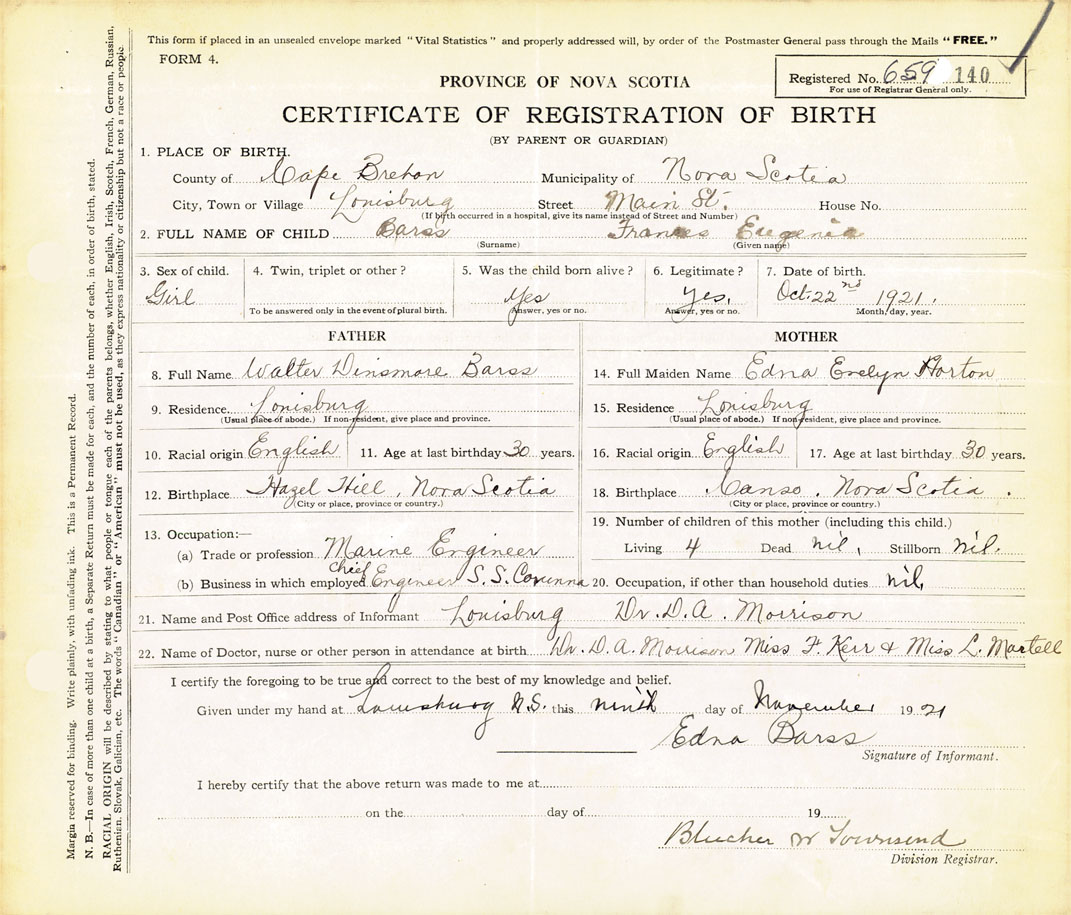 This form if placed in an unsealed envelope marked "Vital Statistics" and properly addressed will, by order of the Postmaster General pass through the Mails "FREE."
FORM 4.
Registered No. 659 140
For use of Registrar General only.
PROVINCE OF NOVA SCOTIA
CERTIFICATE OF REGISTRATION OF BIRTH
(BY PARENT OR GUARDIAN)
1. PLACE OF BIRTH.
County of Cape Breton Municipality of Nova Scotia
City, Town or Village Louisburg Street Main St. House No.
(If birth occurred in a hospital, give its name instead of Street and Number)
2. FULL NAME OF CHILD Barss Frances Eugenia
(Surname) (Given name)
3. Sex of child. 4. Twin, triplet or other? 5. Was the child born alive? 6. Legitimate? 7. Date of birth.
Girl Yes Yes. Oct. 22nd 1921.
To be answered only in the event of plural birth. Answer, yes or no. Answer, yes or no. Month, day, year.
FATHER
8. Full Name Walter Dinsmore Barss
9. Residence Louisburg
(Usual place of abode.) If non-resident, give place and province.
10. Racial origin English 11. Age at last birthday 30 years.
12. Birthplace Hazel Hill, Nova Scotia
(City or place, province or country.)
13. Occupation:—
(a) Trade or profession Marine Engineer
(b) Business in which employed Chief Engineer S.S. Corunna
MOTHER
14. Full Maiden Name Edna Evelyn Horton
15. Residence Louisburg
(Usual place of abode.) If non-resident, give place and province.
16. Racial origin English 17. Age at last birthday 30 years.
18. Birthplace Canso, Nova Scotia.
(City or place, province or country.)
19. Number of children of this mother (including this child.)
Living 4 Dead nil, Stillborn nil.
20. Occupation, if other than household duties nil,
21. Name and Post Office address of Informant Louisburg Dr. D. A. Morrison
22. Name of Doctor, nurse or other person in attendance at birth. Dr. D. A. Morrison Miss F. Kerr & Miss L. Martell
I certify the foregoing to be true and correct to the best of my knowledge and belief.
Given under my hand at Louisburg N.S. this ninth day of November 1921
Edna Barss
Signature of Informant.
I hereby certify that the above return was made to me at
on the day of 19
Blucher W Townsend
Division Registrar.
Margin reserved for binding. Write plainly, with unfading ink. This is a Permanent Record.
N. B.—In case of more than one child at a birth, a Separate Return must be made for each, and the number of each, in order of birth, stated.
RACIAL ORIGIN will be described by stating to what people or tongue each of the parents belongs, whether English, Irish, Scotch, French, German, Russian,
Ruthenian, Slovak, Galician, etc. The words "Canadian" or "American" must not be used, as they express nationality or citizenship but not a race or people.